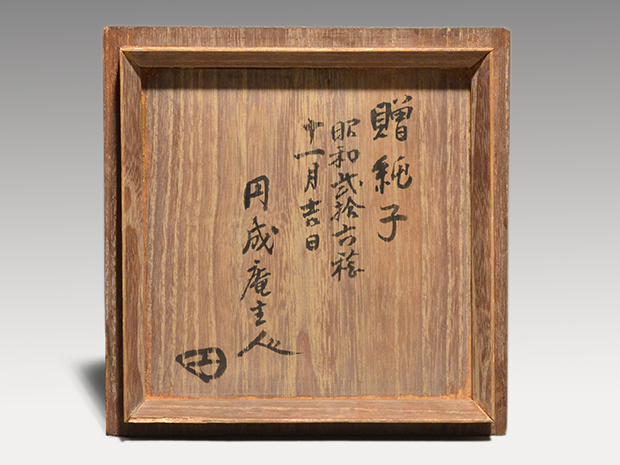 贈純子
昭和弐拾六稔
十一月吉日
円成庵主人